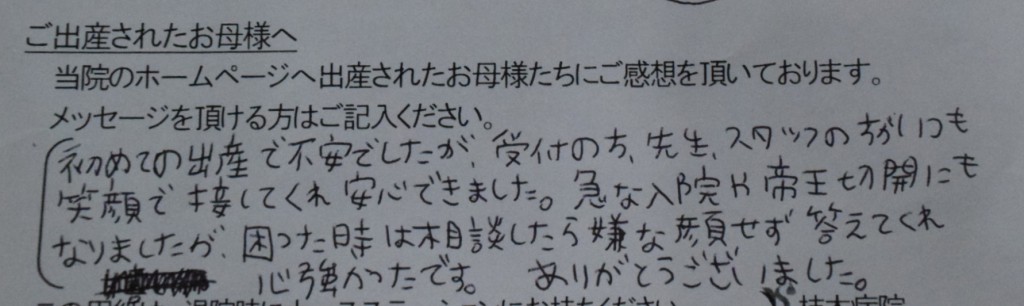 ご出産されたお母様へ
当院のホームページへ出産されたお母様たちにご感想を頂いております。
メッセージを頂ける方はご記入ください。
初めての出産で不安でしたが、受付の方、先生、スタッフの方がいつも
笑顔で接してくれ安心できました。急な入院や帝王切開にも
なりましたが、困った時は相談したら嫌な顔せず答えてくれ
心強かったです。ありがとうございました。